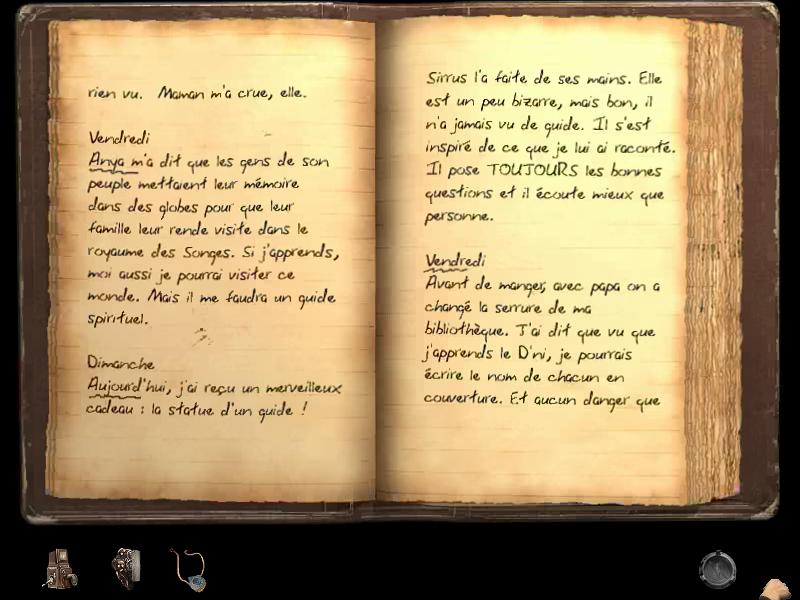 rien vu. Maman m'a crue, elle.
Vendredi
Anya m'a dit que les gens de son
peuple mettaient leur mémoire
dans des globes pour que leur
famille leur rende visite dans le
royaume des Songes. Si j'apprends,
moi aussi je pourrai visiter ce
monde. Mais il me faudra un guide
spirituel.
Dimanche
Aujourd'hui, j'ai reçu un merveilleux
cadeau : la statue d'un guide !
Sirrus l'a faite de ses mains. Elle
est un peu bizarre, mais bon, il
n'a jamais vu de guide. Il s'est
inspiré de ce que je lui ai raconté.
Il pose TOUJOURS les bonnes
questions et il écoute mieux que
personne.
Vendredi
Avant de manger, avec papa on a
changé la serrure de ma
bibliothèque. J'ai dit que vu que
j'apprends le D'ni, je pourrais
écrire le nom de chacun en
couverture. Et aucun danger que